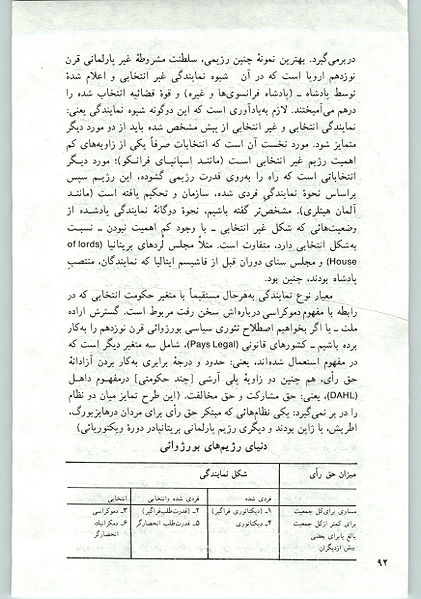 دربرمی‌گیرد. بهترین نمونهٔ چنین رژیمی، سلطنت مشروطهٔ غیر پارلمانی قرن
نوزدهم اروپا است که در آن شیوه نمایندگی غیر انتخابی و اعلام شدهٔ
توسط پادشاه ـ (پادشاه فرانسوی‌ها و غیره) و قوهٔ قضائیه انتخاب شده را
درهم می‌آمیختند. لازم به‌یادآوری است که این دوگونه شیوه نمایندگی یعنی:
نمایندگی انتخابی و غیر انتخابی از پیش مشخص شده باید از دو مورد دیگر
متمایز شود. مورد نخست آن است که انتخابات صرفاً یکی از زاویه‌های کم
اهمیت رژیم غیر انتخابی است (مانند اسپانیای فرانکو)؛ مورد دیگر
انتخاباتی است که راه را به‌روی قدرت رژیمی گشوده، این رژیم سپس
براساس نحوهٔ نمایندگی فردی شده، سازمان و تحکیم یافته است (مانند
آلمان هیتلری). مشخص‌تر گفته باشیم، نحوهٔ دوگانهٔ نمایندگی یادشده از
وضعیت‌هائی که شکل غیر انتخابی ـ با وجود کم اهمیت نبودن ـ نسبت
به‌شکل انتخابی دارد، متفاوت است. مثلاً مجلس لردهای بریتانیا (House of lords)
و مجلس سنای دوران قبل از فاشیسم ایتالیا که نمایندگان، منتصب
پادشاه بودند، چنین بود.
معیار نوع نمایندگی به‌هرحال مستقیماً با متغیر حکومت انتخابی که در
رابطه با مفهوم دموکراسی درباره‌اش سخن رفت مربوط است. گسترش اراده
ملت ـ یا اگر بخواهیم اصطلاح تئوری سیاسی بورژوائی قرن نوزدهم را به‌کار
برده باشیم ـ کشورهای قانونی (Pays Legal)، شامل سه متغیر دیگر است که
در مفهوم استعمال شده‌اند، یعنی: حدود و درجهٔ برابری به‌کار بردن آزادانهٔ
حق رأی، هم چنین دو زاویهٔ پلی آرشی [چند حکومتی] درمفهوم داهل
(DAHL)، یعنی: حق مشارکت و حق مخالفت. (این طرح تمایز میان دو نظام
را در بر نمی‌گیرد: یکی نظام‌هائی که مبتکر حق رأی برای مردان درهابزبورگ،
اطریش، یا ژاپن بودند و دیگری رژیم پارلمانی بریتانیادر دورهٔ ویکتوریائی)
دنیای رژیم‌های بورژوائی
میزان حق رأی
شکل نمایندگی
فردی شده
فردی شده وانتخابی
انتخابی
مساوی برای‌کل جمعیت
۱ـ (دیکتاتوری فراگیر)
۲ـ (قدرت‌طلب‌فراگیر)
۳ـ دموکراسی
برای کمتر ازکل جمعیت
بالغ یابرای بعضی
بیش ازدیگران
۴ـ دیکتاتوری
۵ـ قدرت‌طلب انحصارگر
۶ـ دمکراتیك
انحصارگر
۹۲